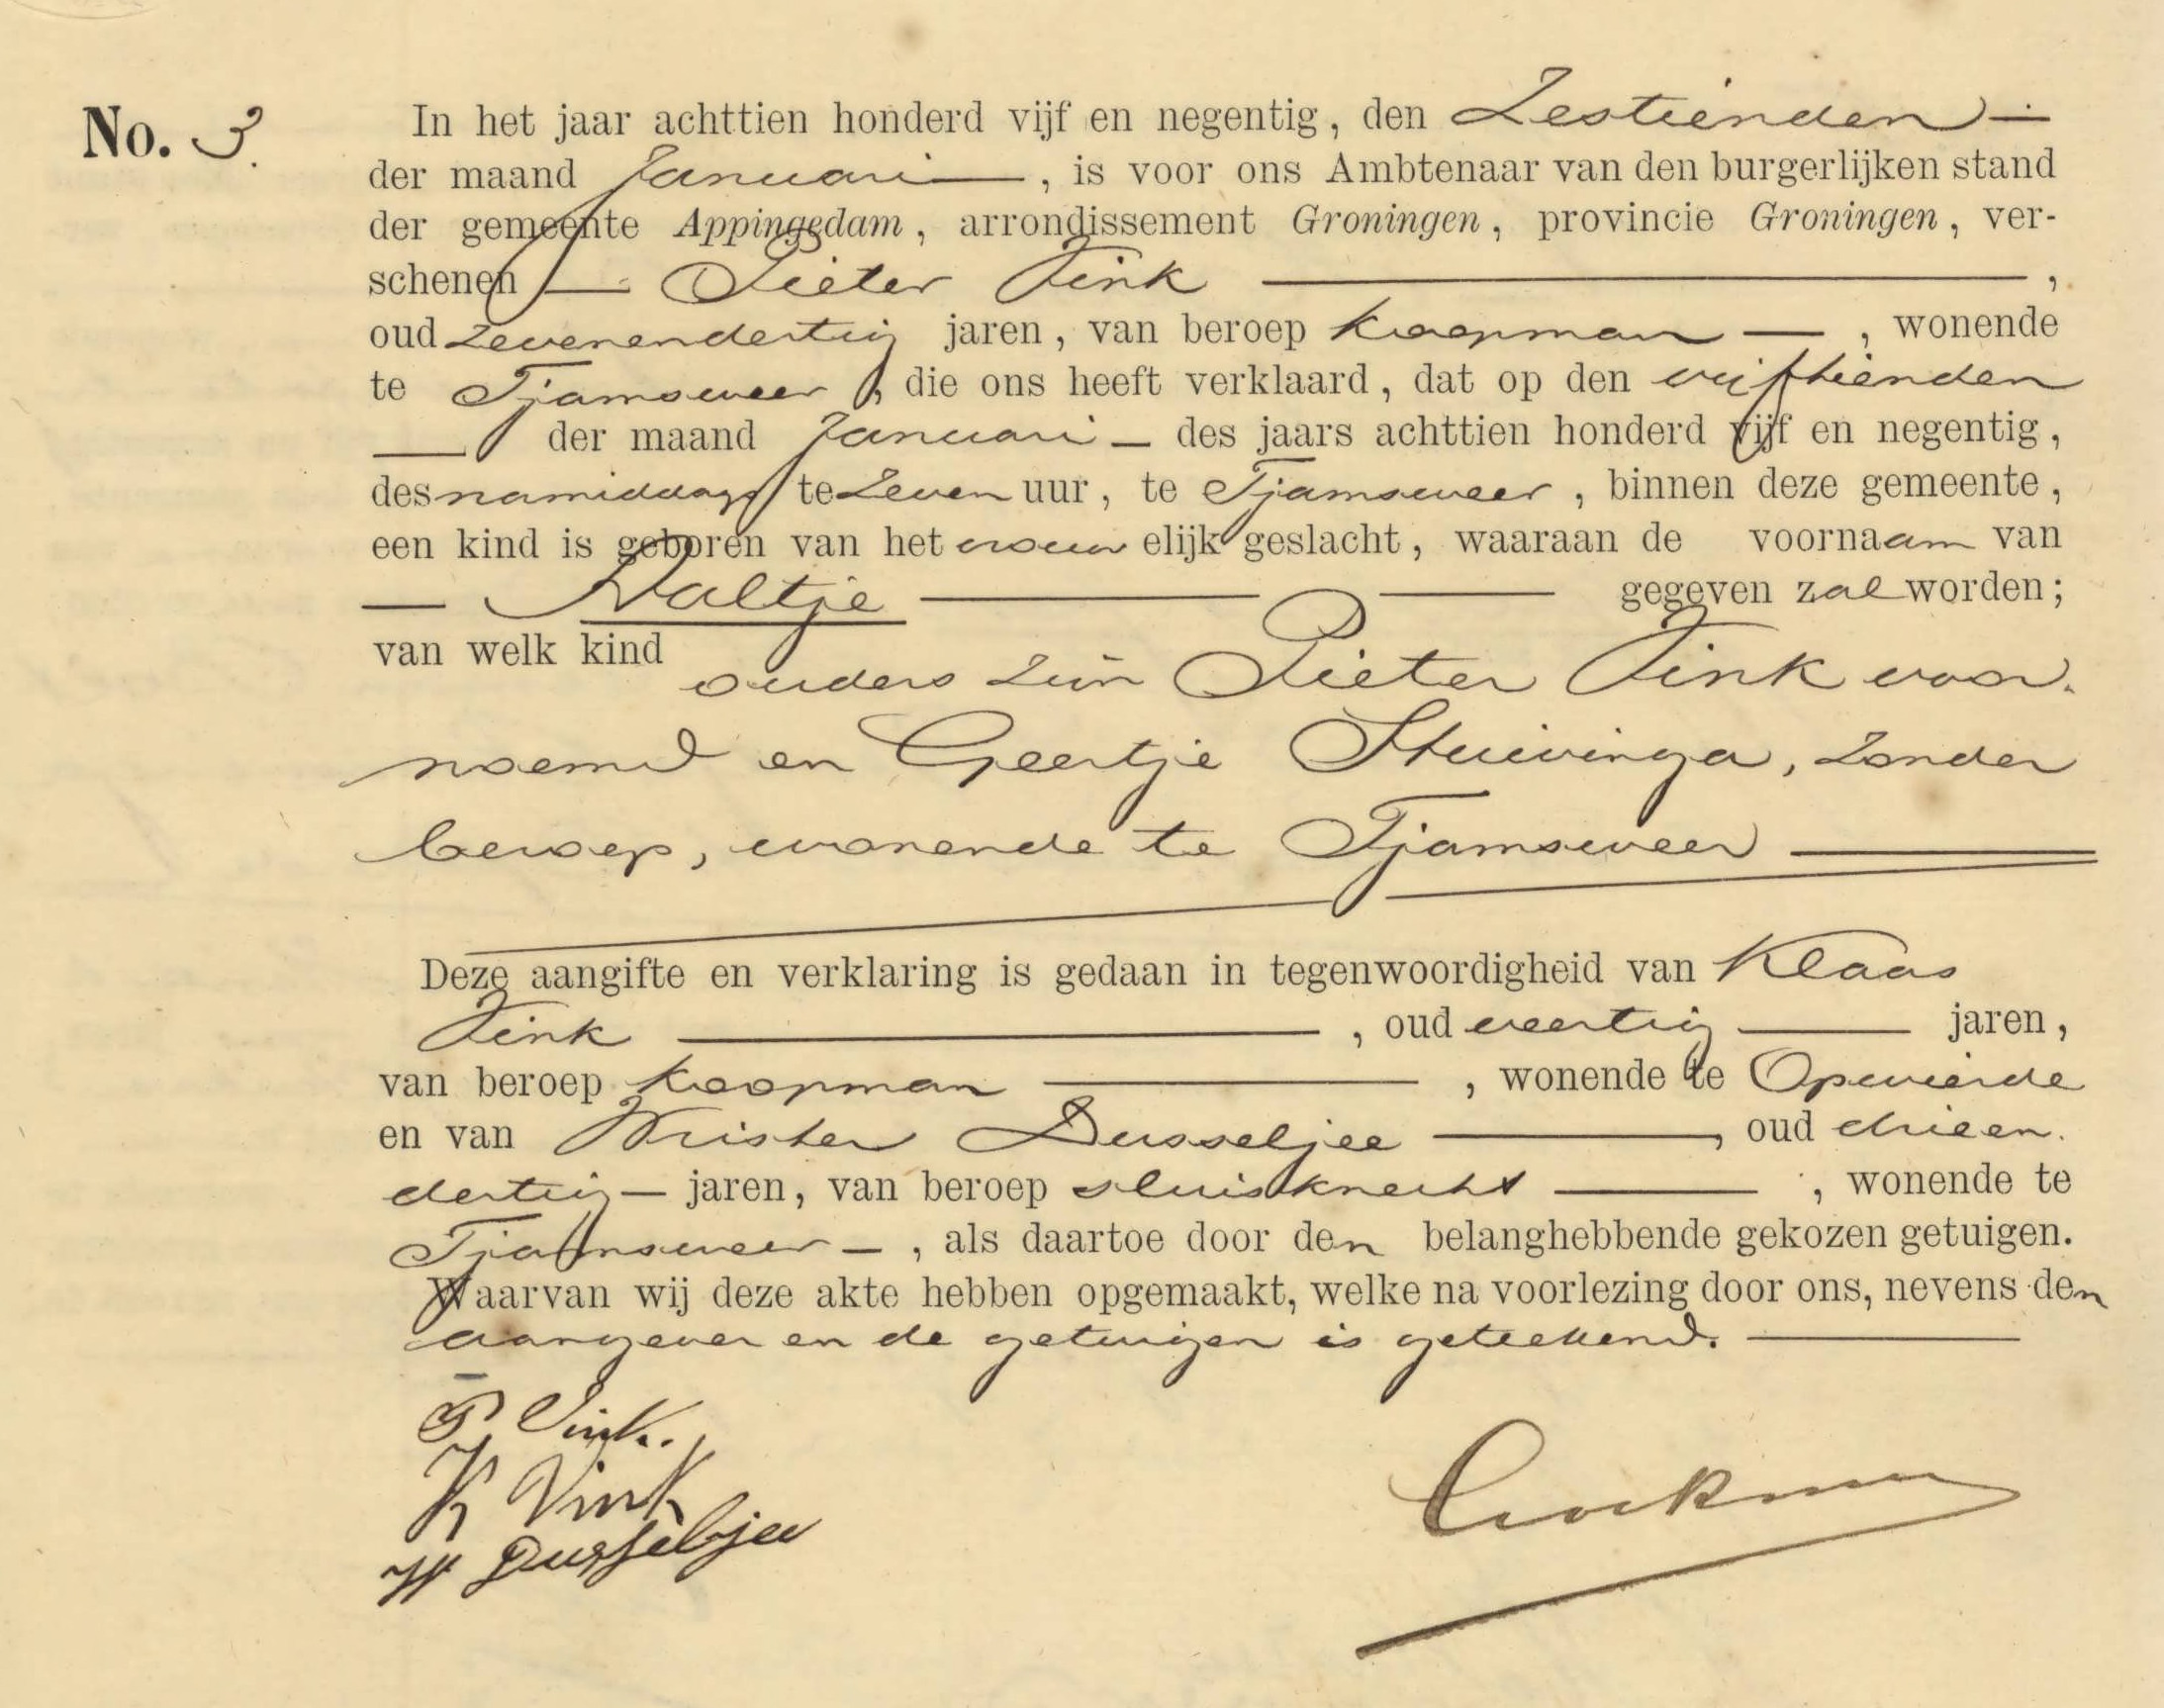 No. 3.
In het jaar achttien honderd vijf en negentig, den Zestienden —
der maand Januari —, is voor ons Ambtenaar van den burgerlijken stand
der gemeente Appingedam, arrondissement Groningen, provincie Groningen, ver-
schenen — Pieter Vink —,
oud zevenendertig jaren, van beroep koopman —, wonende
te Tjamsweer, die ons heeft verklaard, dat op den vijftienden
— der maand Januari — des jaars achttien honderd vijf en negentig,
des namiddags te zeven uur, te Tjamsweer, binnen deze gemeente,
een kind is geboren van het vrouwelijk geslacht, waaraan de voornaam van
— Waltje — — gegeven zal worden;
van welk kind ouders zijn Pieter Vink voor-
noemd en Geertje Stuivinga, zonder
beroep, wonende te Tjamsweer —
Deze aangifte en verklaring is gedaan in tegenwoordigheid van Klaas
Vink —, oud veertig — jaren,
van beroep koopman —, wonende te Opwierde
en van Wuister Dusseljee —, oud drieen-
dertig — jaren, van beroep sluisknecht —, wonende te
Tjamsweer —, als daartoe door den belanghebbende gekozen getuigen.
Waarvan wij deze akte hebben opgemaakt, welke na voorlezing door ons, nevens den
aangever en de getuigen is geteekend. —
P Vink.
K Vink
W Dusseljee